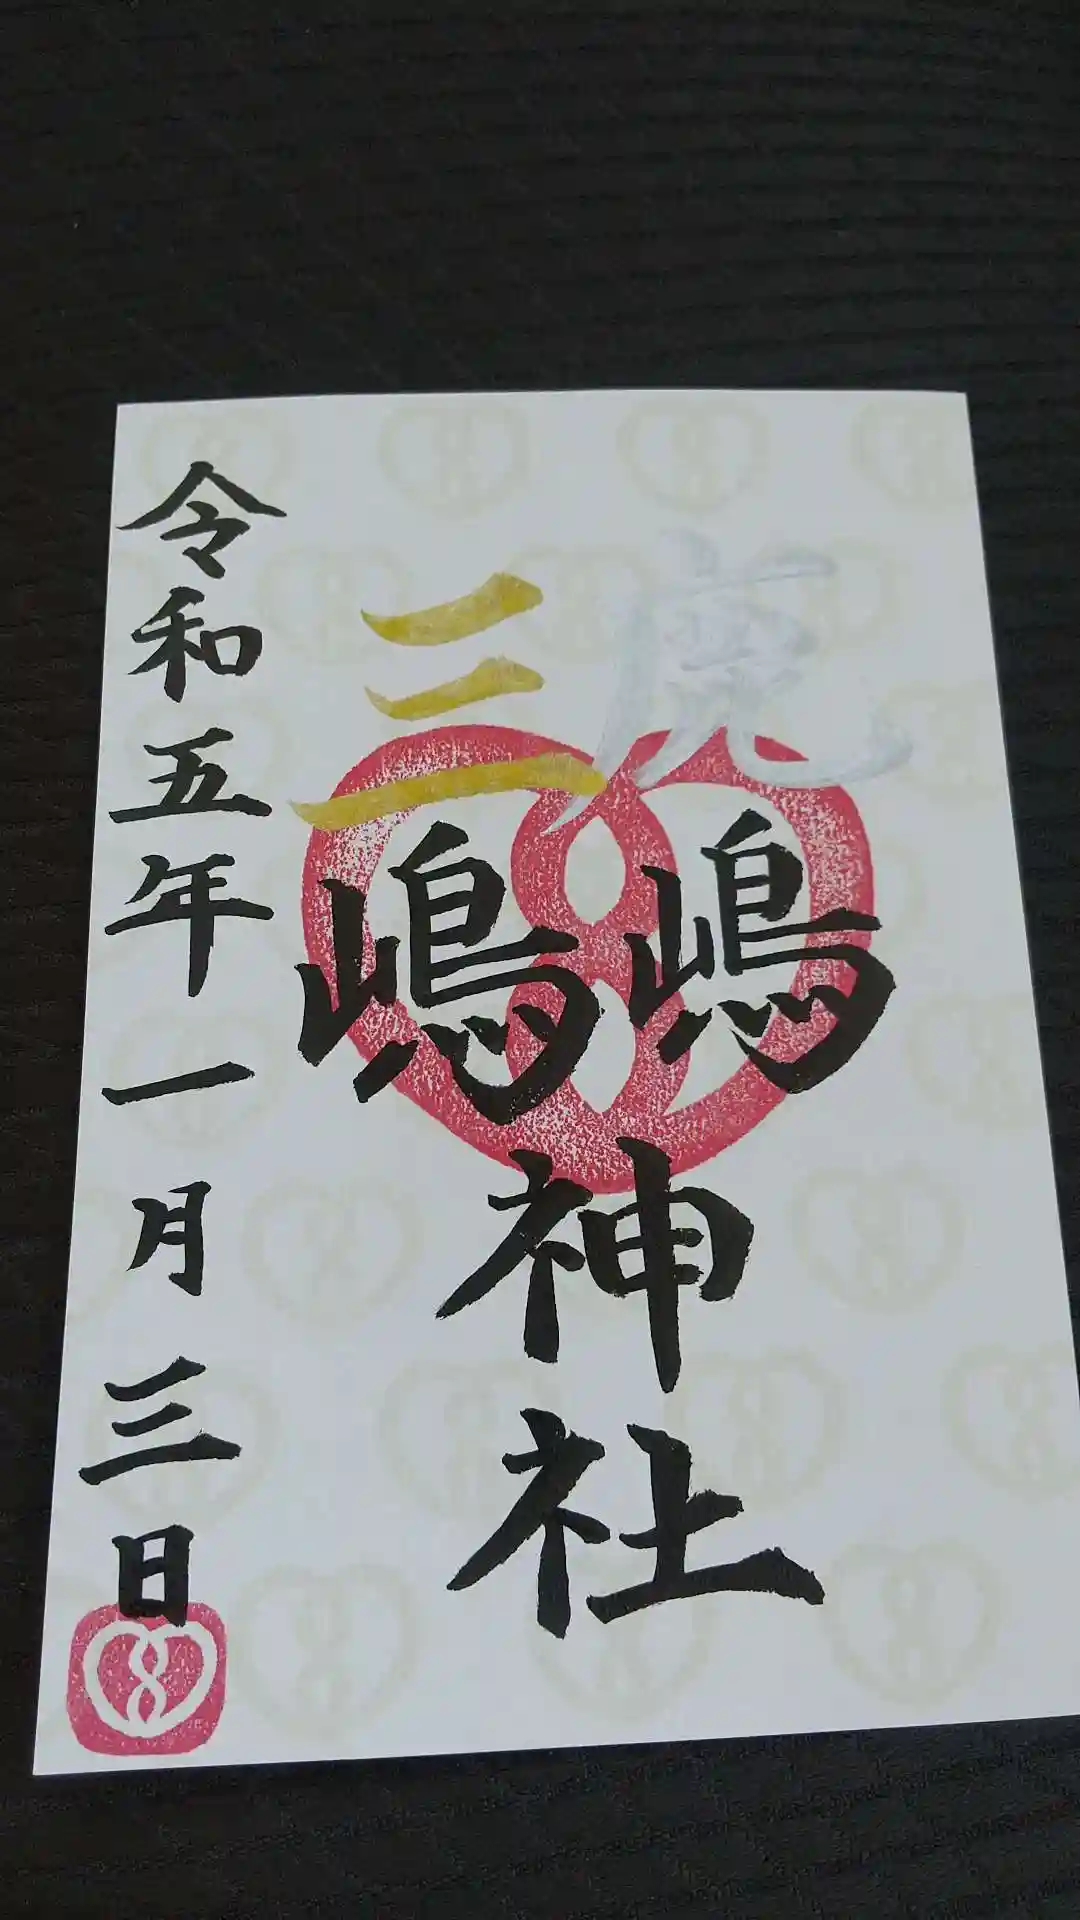 鹿嶋
三嶋
神社
令和五年一月三日